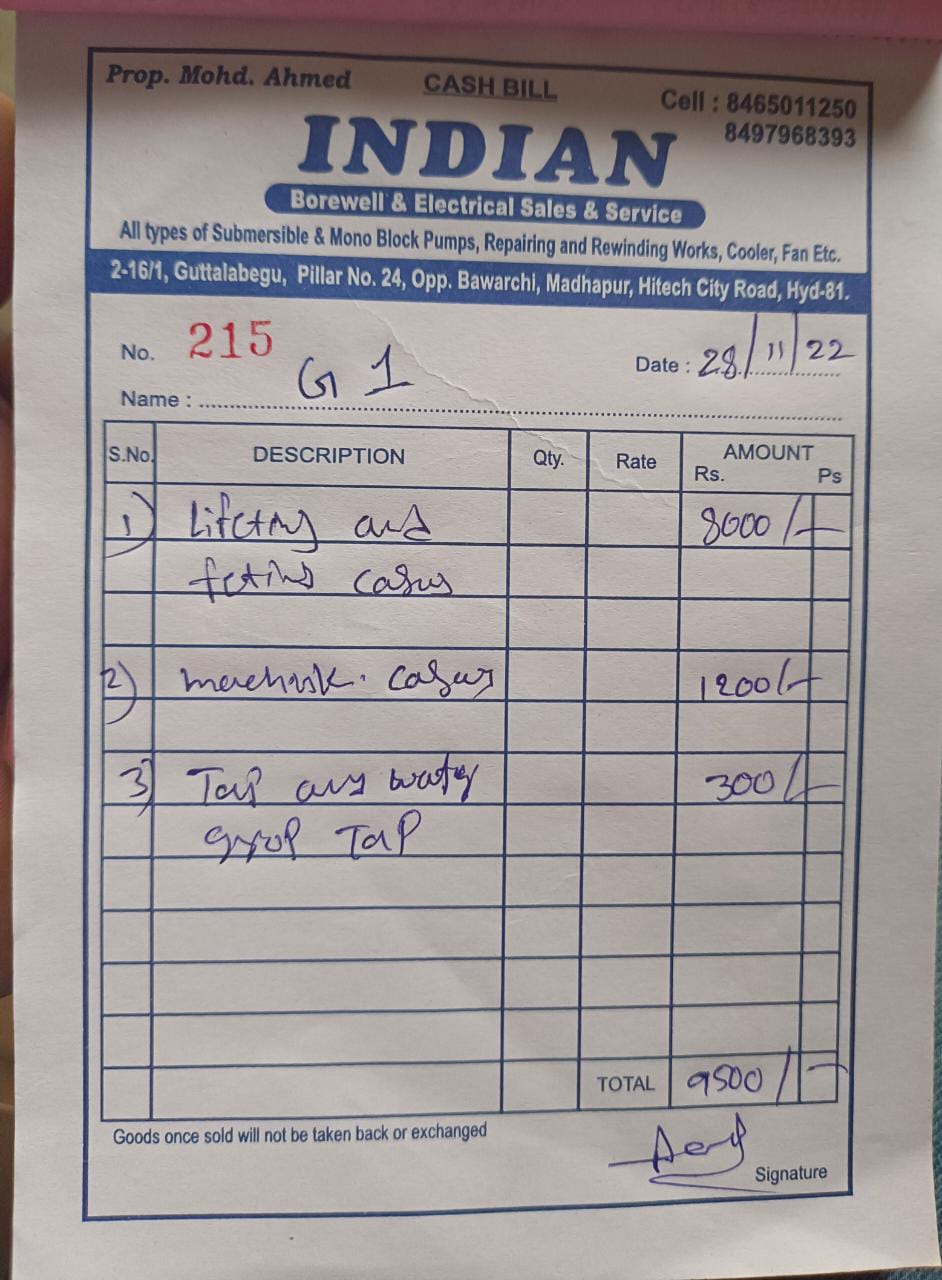 Prop. Mohd. Ahmed CASH BILL Cell : 8465011250
8497968393
INDIAN
Borewell & Electrical Sales & Service
All types of Submersible & Mono Block Pumps, Repairing and Rewinding Works, Cooler, Fan Etc.
2-16/1, Guttalabegu, Pillar No. 24, Opp. Bawarchi, Madhapur, Hitech City Road, Hyd-81.
No. 215 Date : 28/11/22
Name : G 1
S.No. DESCRIPTION Qty. Rate AMOUNT
Rs. Ps
1) and 8000/-
2) 1200/-
3) Tap 300/-
Tap
TOTAL 9500/-
Goods once sold will not be taken back or exchanged
Signature